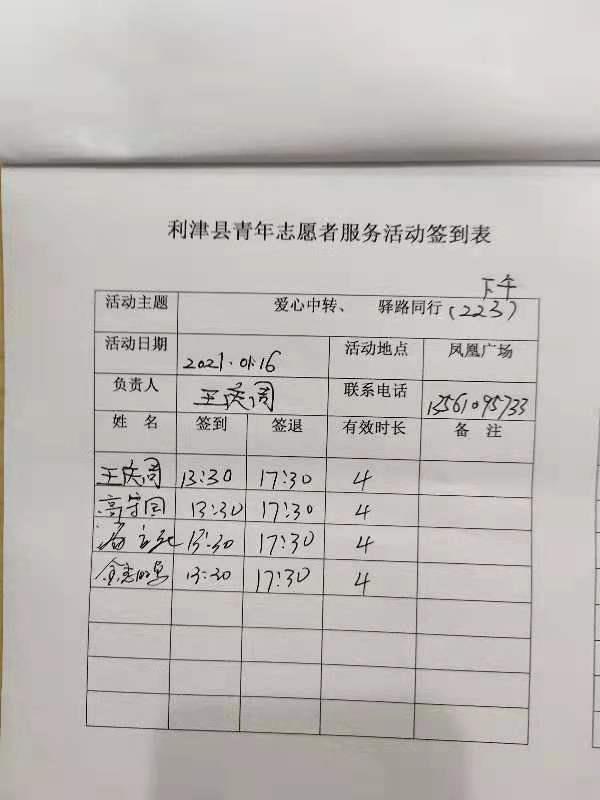 利津县青年志愿者服务活动签到表
下午
活动主题 爱心中转、 驿路同行(223)
活动日期 2021.01.16 活动地点 凤凰广场
负责人 王庆周 联系电话 13561095733
姓 名 签到 签退 有效时长 备 注
王庆周 13:30 17:30 4
高守国 13:30 17:30 4
13:30 17:30 4
13:30 17:30 4